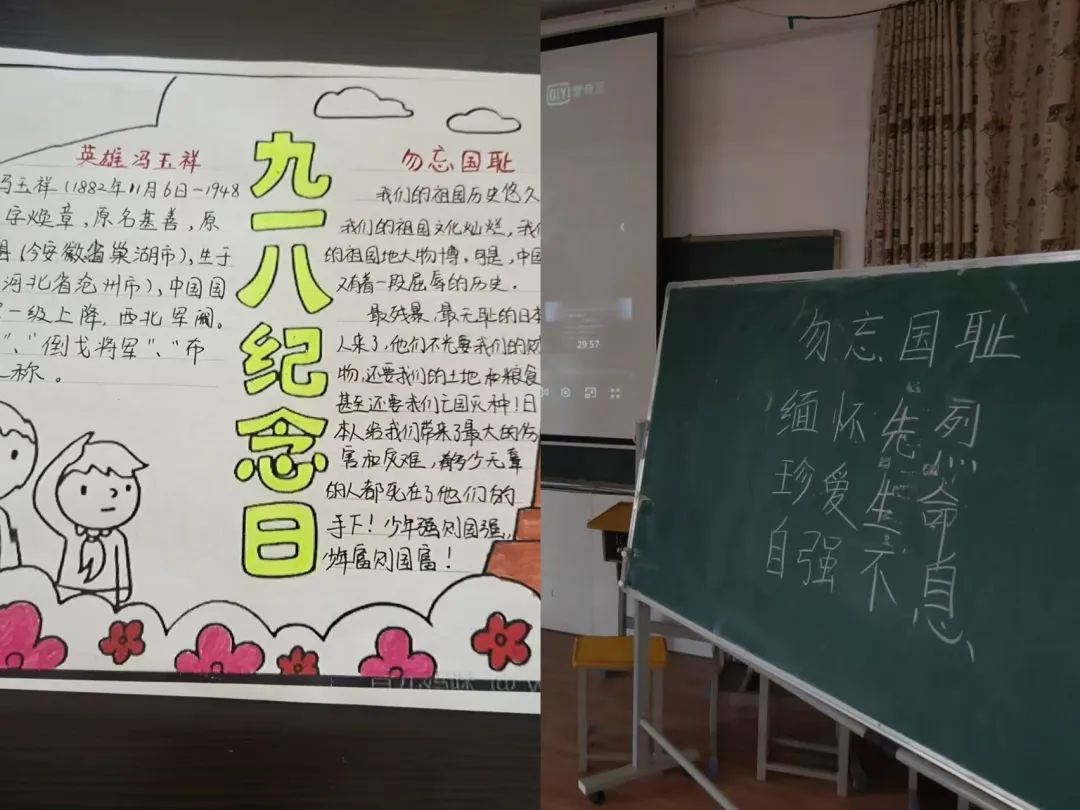 英雄冯玉祥
冯玉祥(1882年11月6日－1948
字焕章,原名基善,原
县(今安徽省巢湖市),生于
河北省沧州市),中国国
一级上降,西北军阀。
"、"倒戈将军"、"布
称。
九一八纪念日
勿忘国耻
我们的祖国历史悠久
我们的祖国文化灿烂,我们
的祖国地大物博。可是,中国
又有着一段屈辱的历史。
最残暴、最无耻的日本
人来了,他们不光要我们的财
物,还要我们的土地和粮食
甚至还要我们亡国灭种!日
本人给我们带来了最大的伤
害和灾难,有多少无辜
的人都死在了他们的
手下!少年强则国强,
少年富则国富!
DIY
29:57
勿忘国耻
缅怀先烈
珍爱生命
自强不息